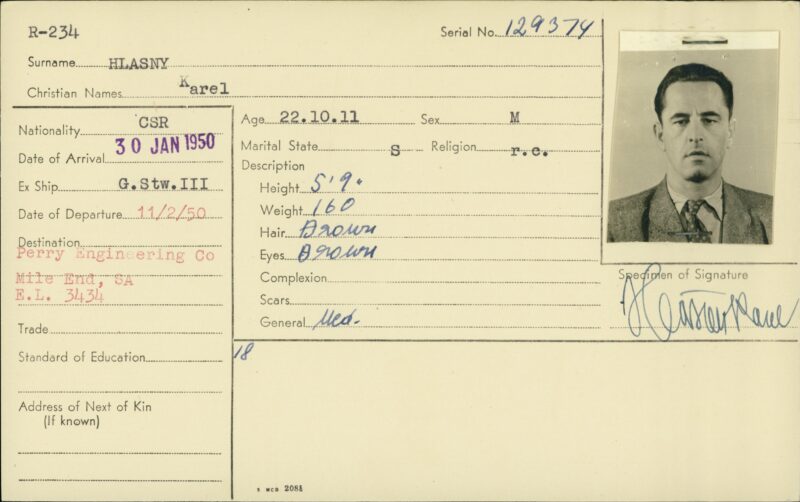 R-234
Serial No. 129374
Surname HLASNY
Christian Names Karel
Nationality CSR
Date of Arrival 30 JAN 1950
Ex Ship G.Stw.III
Date of Departure 11/2/50
Destination
Perry Engineering Co
Mile End, SA
E.L. 3434
Trade
Standard of Education
Address of Next of Kin
(If known)
Age 22.10.11 Sex M
Marital State S Religion r.c.
Description
Height 5'9"
Weight 160
Hair Brown
Eyes Brown
Complexion
Scars
General Med.
18
Specimen of Signature
S MCD 2083